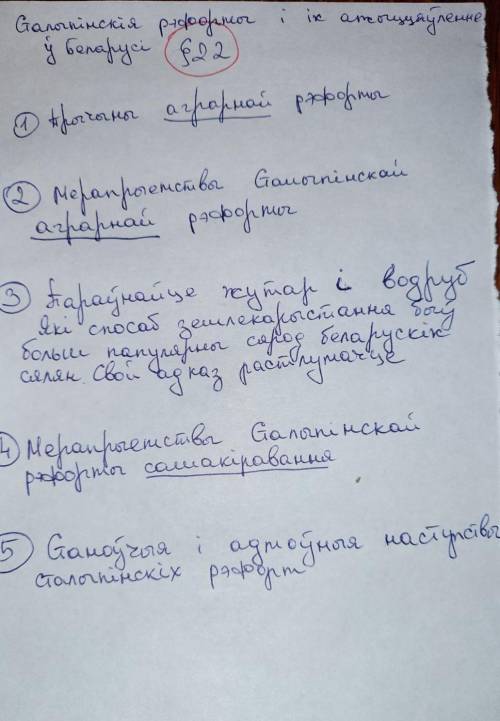 Сталыпінскія рэформы і іх ажыццяўленне
ў Беларусі §22
① Прычыны аграрнай рэформы
② Мерапрыемствы Сталыпінскай
аграрнай рэформы
③ Параўнайце хутар і водруб
Які спосаб землекарыстання быў
больш папулярны сярод беларускіх
сялян. Свой адказ растлумачце
④ Мерапрыемствы Сталыпінскай
рэформы самакіравання
⑤ Станоўчыя і адмоўныя наступствы
сталыпінскіх рэформ